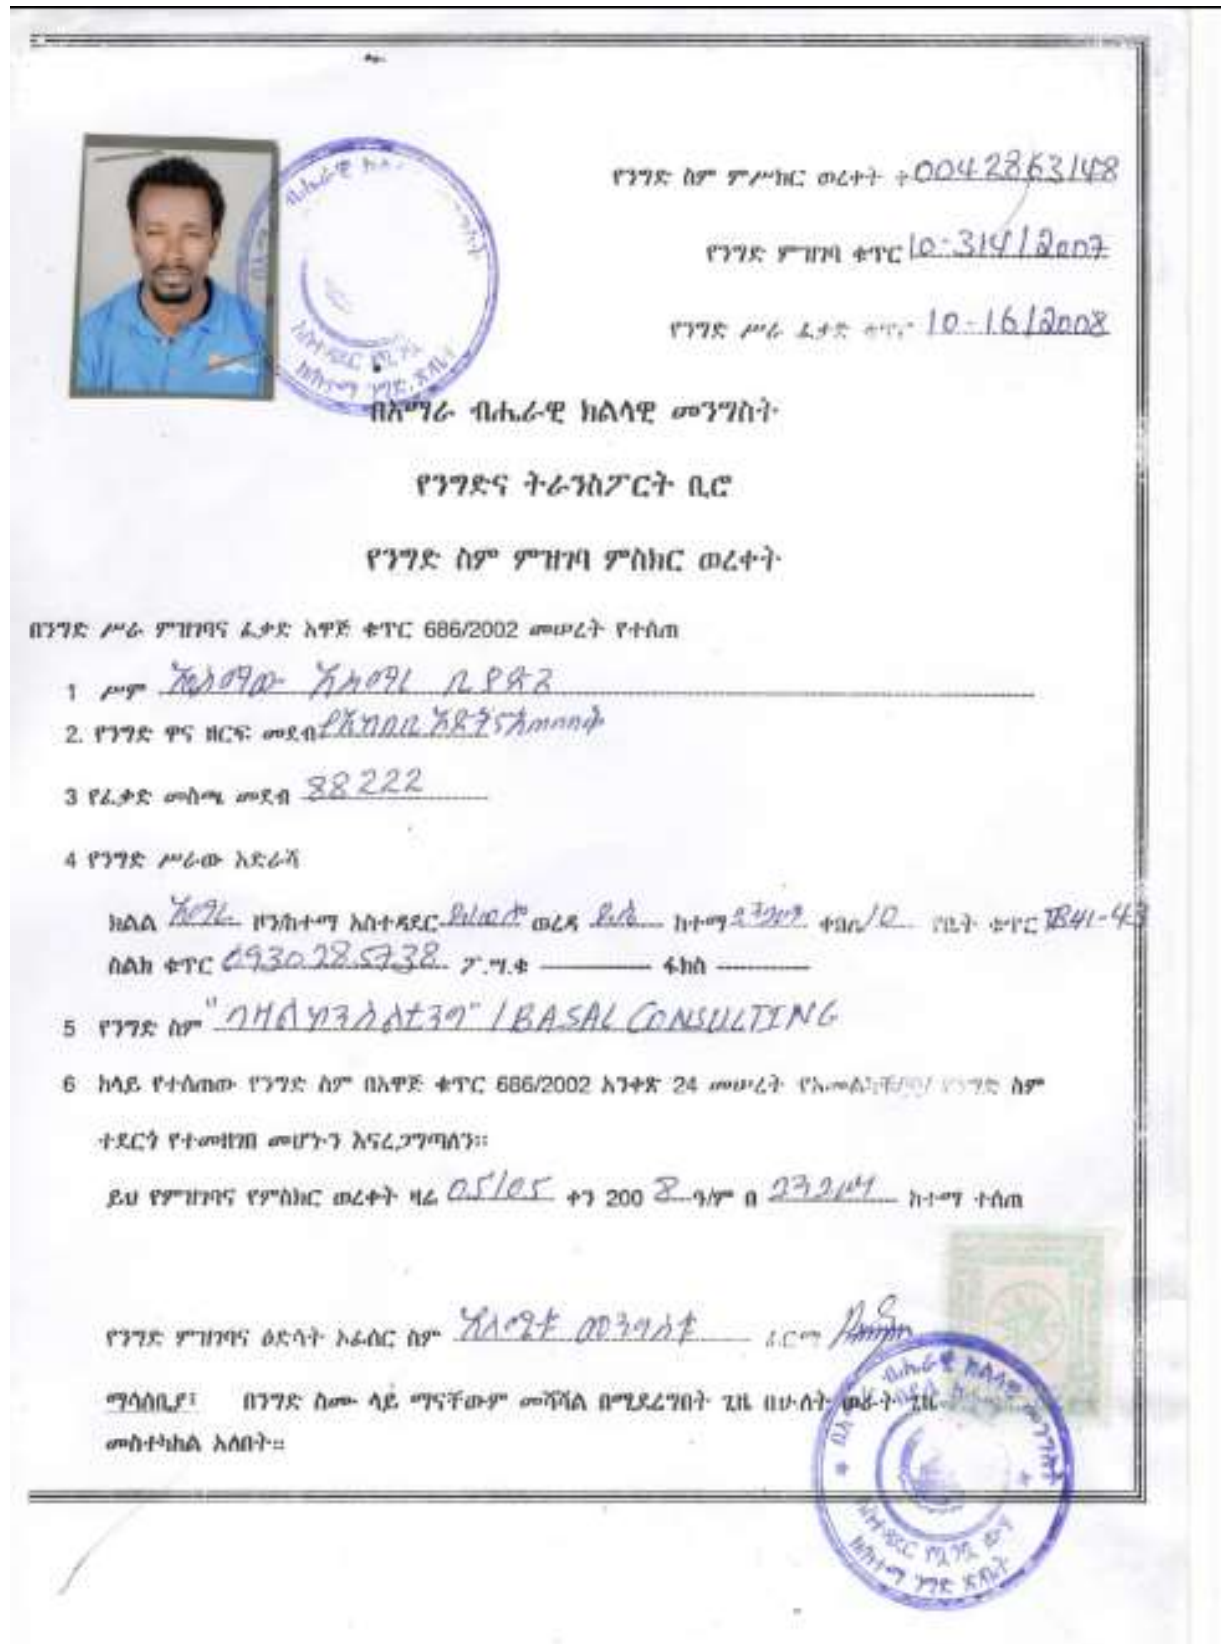 የንግድ ስም ምሥክር ወረቀት ቀ 0042863148
የንግድ ምዝገባ ቁጥር 10-314/2007
የንግድ ሥራ ፈቃድ ቁጥር 10-16/2008
በአማራ ብሔራዊ ክልላዊ መንግስት
የንግድና ትራንስፖርት ቢሮ
የንግድ ስም ምዝገባ ምስክር ወረቀት
በንግድ ሥራ ምዝገባና ፈቃድ አዋጅ ቁጥር 686/2002 መሠረት የተሰጠ
1 ሥም
2. የንግድ ዋና ዘርፍ መደብ
3 የፈቃድ መስጫ መደብ 88222
4 የንግድ ሥራው አድራሻ
ክልል አማራ ዞን/ከተማ አስተዳደር ወረዳ ከተማ ቀበሌ 10 የቤት ቁጥር TB41-43
ስልክ ቁጥር 0930285738 ፖ.ሣ.ቁ ---------- ፋክስ ----------
5 የንግድ ስም "ባዛል ኮንሰልቲንግ" / BASAL CONSULTING
6 ከላይ የተሰጠው የንግድ ስም በአዋጅ ቁጥር 686/2002 አንቀጽ 24 መሠረት ንግድ ስም
ተደርጎ የተመዘገበ መሆኑን እናረጋግጣለን፡፡
ይህ የምዝገባና የምስክር ወረቀት ዛሬ 05/05 ቀን 200 8 ዓ/ም በ ከተማ ተሰጠ
የንግድ ምዝገባና ዕድሳት ኦፊሰር ስም ፊርማ
ማሳሰቢያ፤ በንግድ ስሙ ላይ ማናቸውም መሻሻል በሚደረግበት ጊዜ በሁለት ወራት ጊዜ
መስተካከል አለበት፡፡